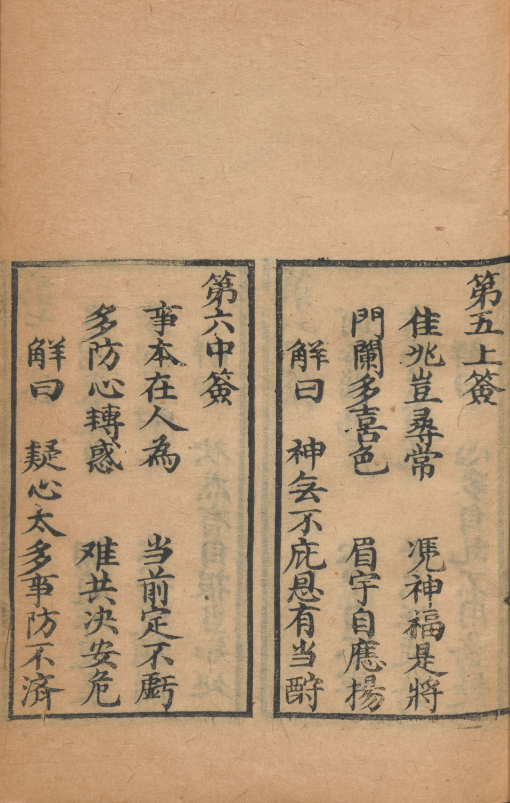 第五上簽
佳兆豈尋常　凴神福是將
門闌多喜色　眉宇自應揚
解曰　神無不庇恩有当酧
第六中簽
事本在人為　当前定不虧
多防心轉惑　难共决安危
解曰　疑心太多事防不濟